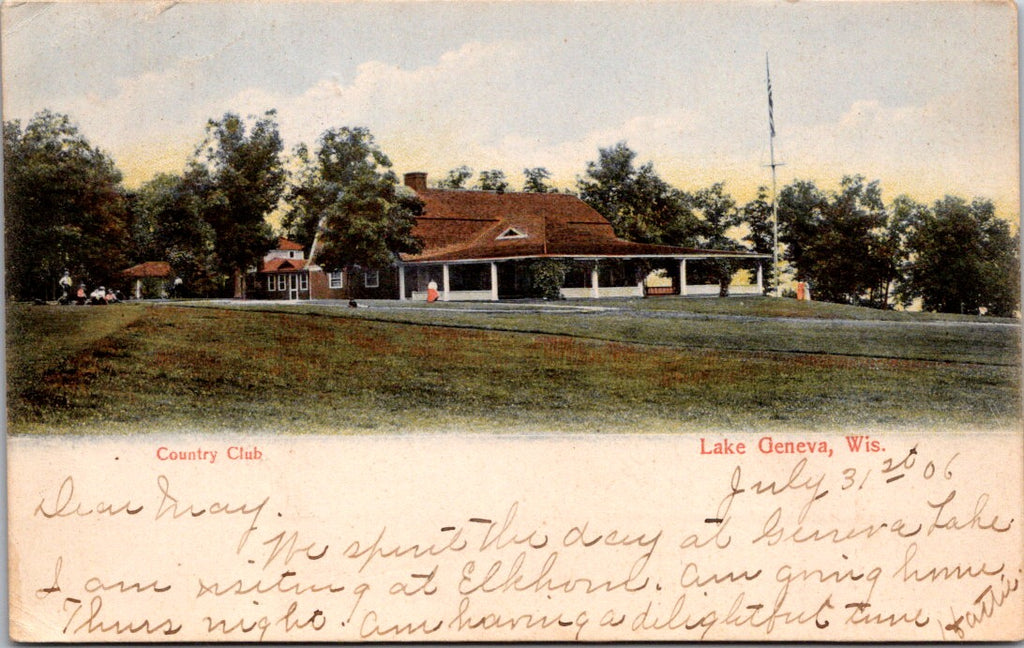 Country Club
Lake Geneva, Wis.
July 31st 06
Dear May.
We spent the day at Geneva Lake
I am visiting at Elkhorn. Am going home
Thurs night. Am having a delightful time
Hattie